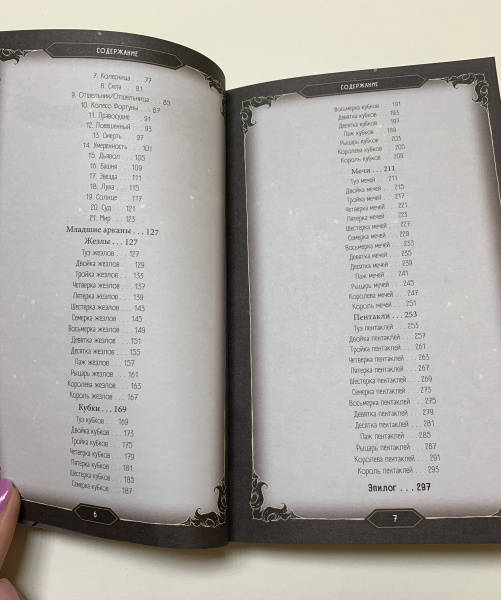 СОДЕРЖАНИЕ
7. Колесница . . . 77
8. Сила . . . 81
9. Отшельник/Отшельница . . . 85
10. Колесо Фортуны . . . 87
11. Правосудие . . . 91
12. Повешенный . . . 93
13. Смерть . . . 97
14. Умеренность . . . 101
15. Дьявол . . . 105
16. Башня . . . 109
17. Звезда . . . 111
18. Луна . . . 115
19. Солнце . . . 117
20. Суд . . . 121
21. Мир . . . 123
Младшие арканы . . . 127
Жезлы . . . 127
Туз жезлов . . . 127
Двойка жезлов . . . 129
Тройка жезлов . . . 133
Четверка жезлов . . . 137
Пятерка жезлов . . . 139
Шестерка жезлов . . . 143
Семерка жезлов . . . 145
Восьмерка жезлов . . . 149
Девятка жезлов . . . 151
Десятка жезлов . . . 155
Паж жезлов . . . 157
Рыцарь жезлов . . . 161
Королева жезлов . . . 163
Король жезлов . . . 167
Кубки . . . 169
Туз кубков . . . 169
Двойка кубков . . . 173
Тройка кубков . . . 175
Четверка кубков . . . 179
Пятерка кубков . . . 181
Шестерка кубков . . . 185
Семерка кубков . . . 187
6
СОДЕРЖАНИЕ
Восьмерка кубков . . . 191
Девятка кубков . . . 193
Десятка кубков . . . 197
Паж кубков . . . 199
Рыцарь кубков . . . 203
Королева кубков . . . 205
Король кубков . . . 209
Мечи . . . 211
Туз мечей . . . 211
Двойка мечей . . . 215
Тройка мечей . . . 217
Четверка мечей . . . 221
Пятерка мечей . . . 223
Шестерка мечей . . . 227
Семерка мечей . . . 229
Восьмерка мечей . . . 233
Девятка мечей . . . 235
Десятка мечей . . . 239
Паж мечей . . . 241
Рыцарь мечей . . . 245
Королева мечей . . . 247
Король мечей . . . 251
Пентакли . . . 253
Туз пентаклей . . . 253
Двойка пентаклей . . . 257
Тройка пентаклей . . . 261
Четверка пентаклей . . . 263
Пятерка пентаклей . . . 267
Шестерка пентаклей . . . 269
Семерка пентаклей . . . 273
Восьмерка пентаклей . . . 275
Девятка пентаклей . . . 279
Десятка пентаклей . . . 281
Паж пентаклей . . . 285
Рыцарь пентаклей . . . 287
Королева пентаклей . . . 291
Король пентаклей . . . 293
Эпилог . . . 297
7